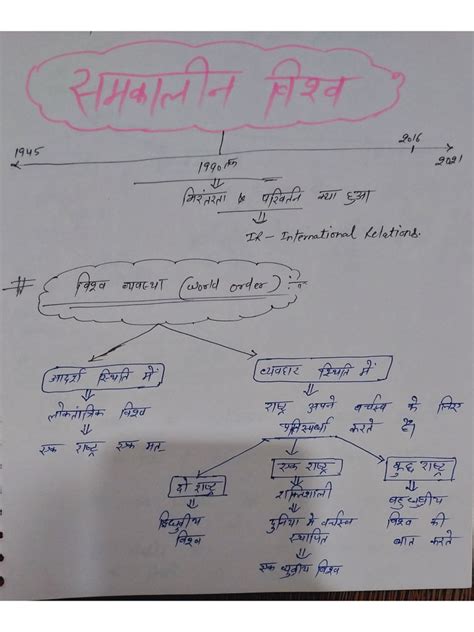 समकालीन विश्व
1945
1990 तक
2016
2021
निरंतरता & परिवर्तन क्या हुआ
IR - International Relations.
# विश्व व्यवस्था (World order) :-
आदर्श स्थिति में
व्यवहार स्थिति में
लोकतांत्रिक विश्व
एक राष्ट्र एक मत
राष्ट्र अपने वर्चस्व के लिए
प्रतिस्पर्धा करते हैं
दो राष्ट्र
एक राष्ट्र
कुछ राष्ट्र
द्विध्रुवीय
विश्व
शक्तिशाली
दुनिया में वर्चस्व
स्थापित
एक ध्रुवीय विश्व
बहुध्रुवीय
विश्व की
बात करते